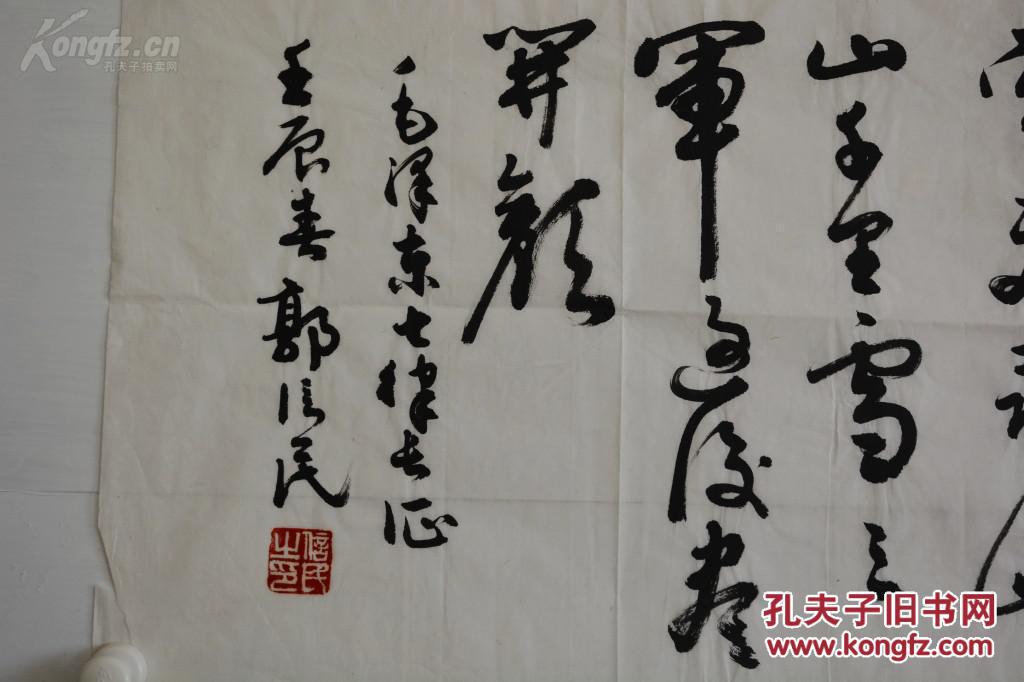 山千里雪三
軍過後盡
開顏
毛澤東七律长征
壬辰春 郭信民
信民之印
Kongfz.cn
孔夫子拍卖网
孔夫子旧书网
www.kongfz.com